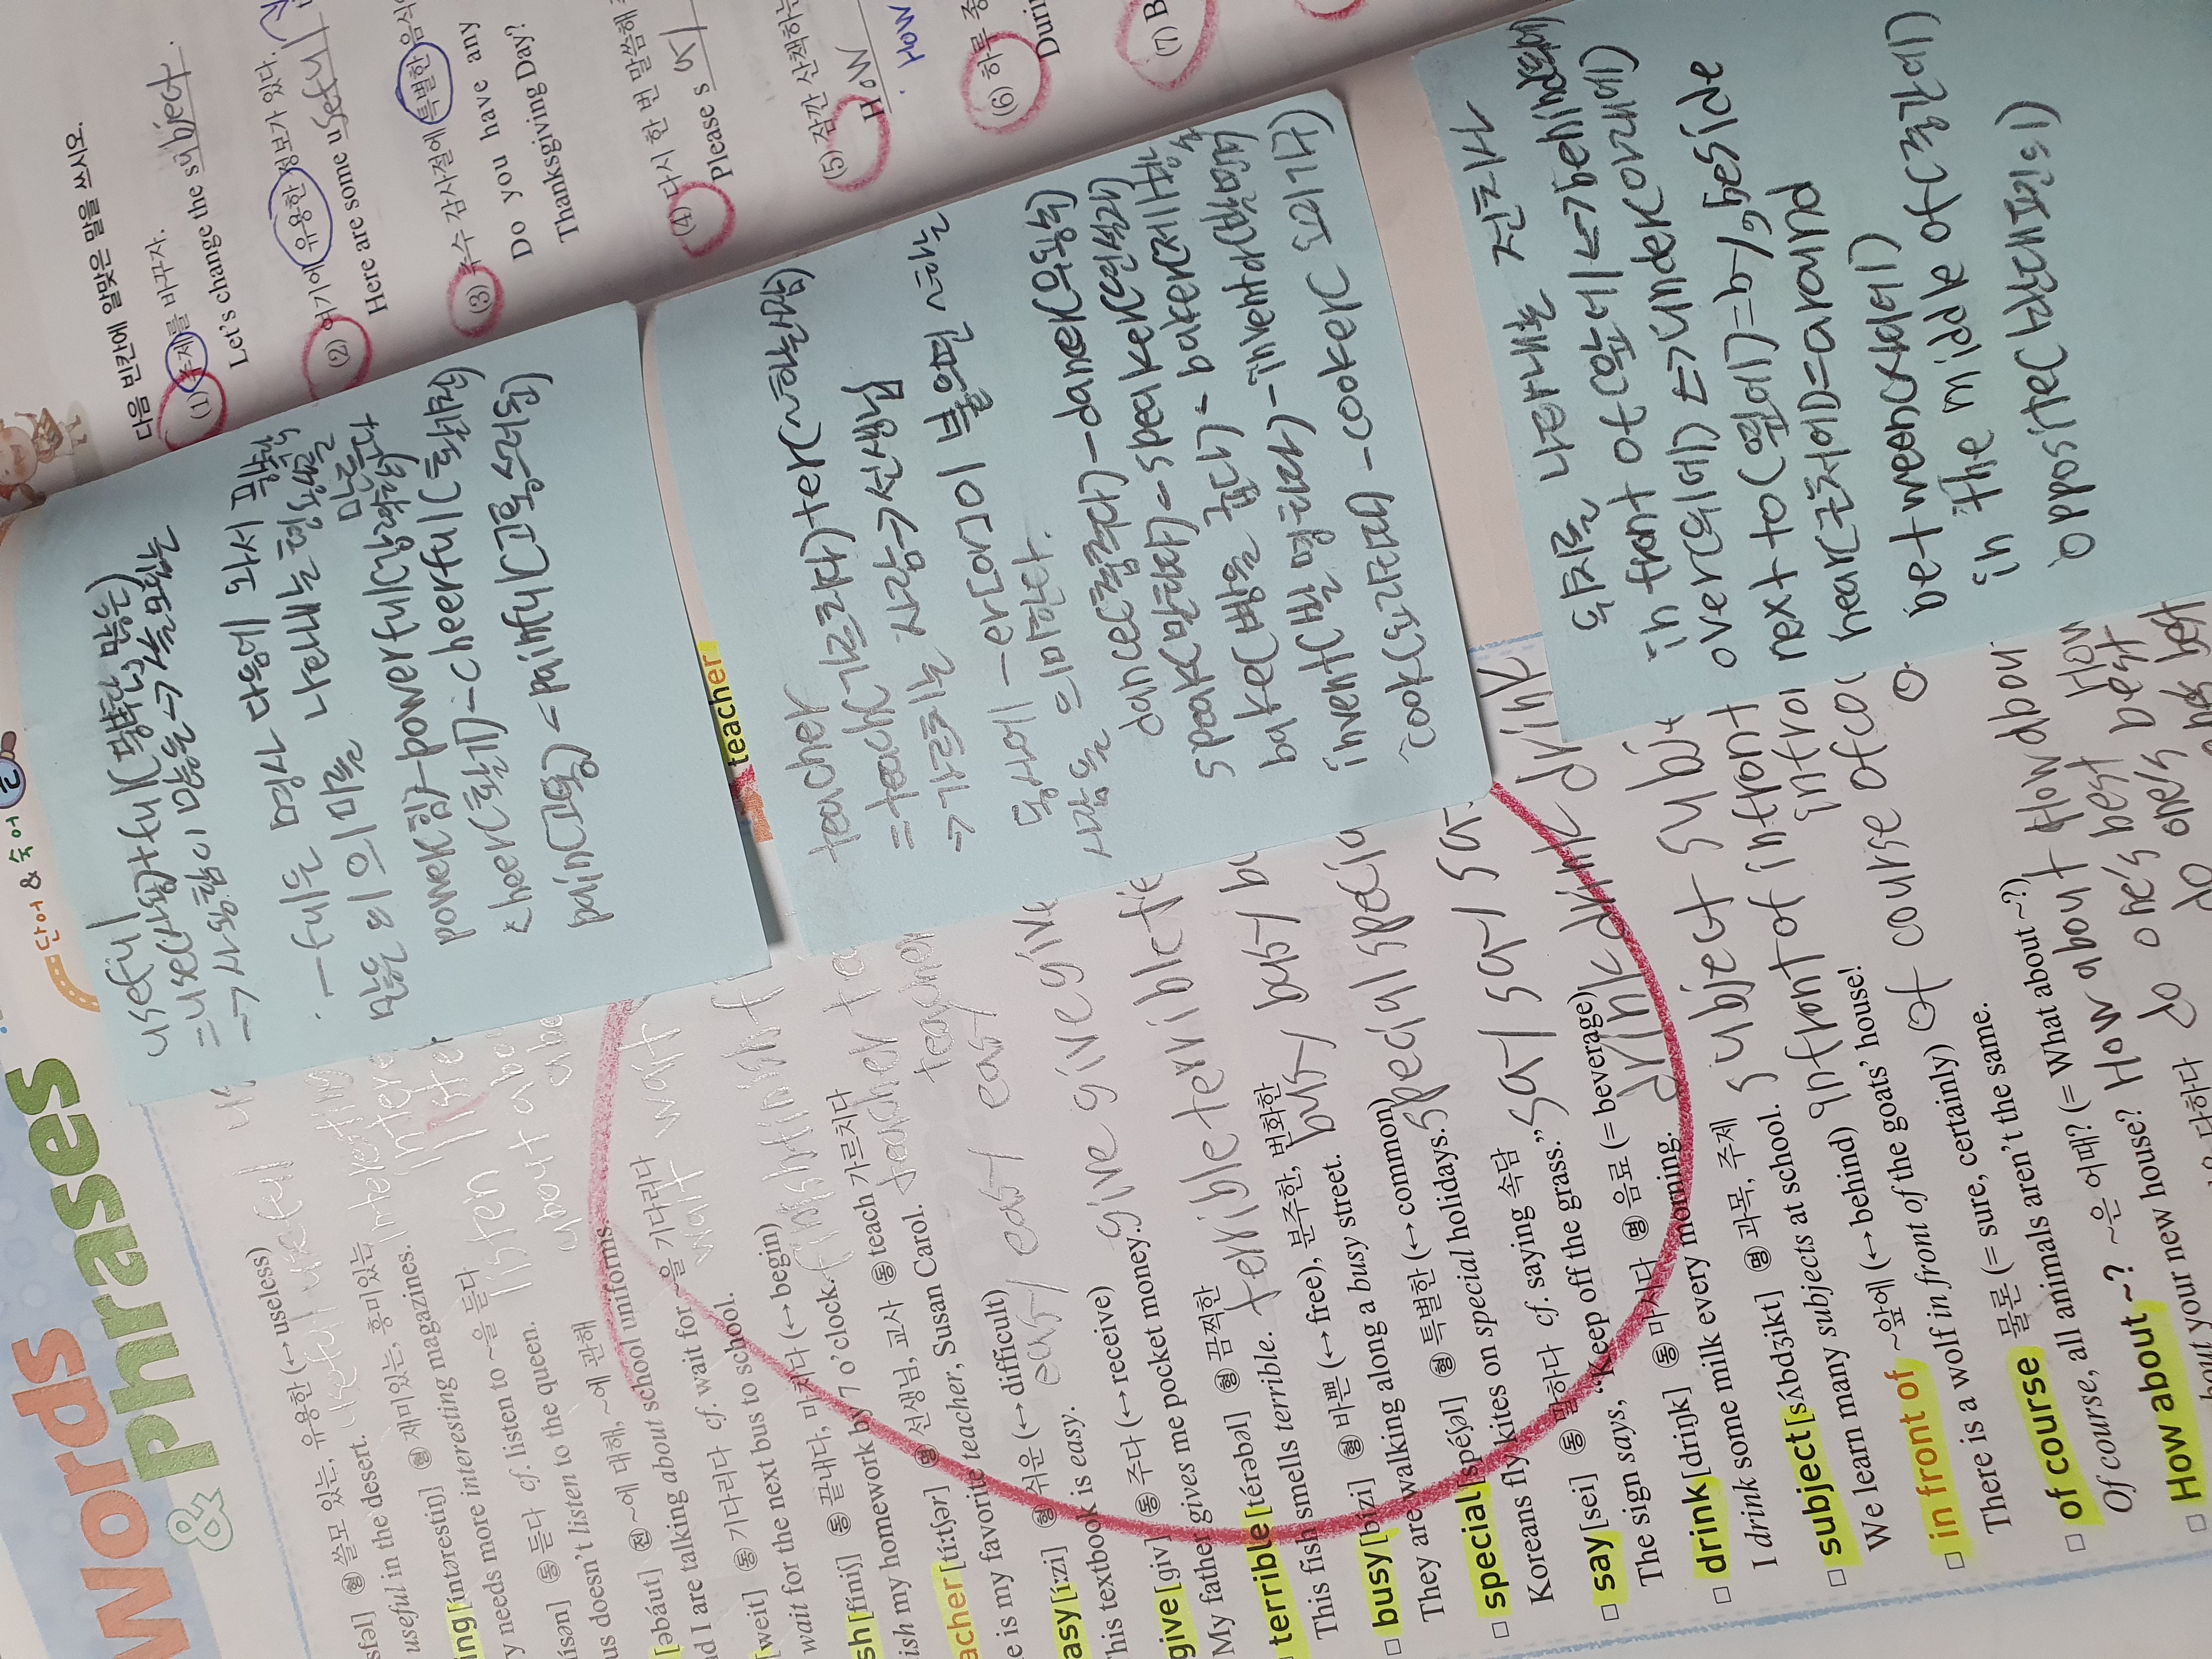 words
& Phrases
단어 & 숙어
useful
=use(사용)+ful(
→사용함이 많은→쓸모있는
-ful은 명사 다음에 와서
많은 의 의미를 나타내는 형용사를
만든다
power(힘)-powerful(
cheer(활기)-cheerful(
pain(고통)=painful(고통스러운)
teacher
teacher
=teach(가르치다)+er(~하는사람)
→가르치는 사람→선생님
동사에 -er(이) 붙으면 ~하는
사람을 의미한다.
dance(춤추다)-dancer(무용수)
speak(말하다)-speaker(연설자)
bake(빵을 굽다)-baker(제빵사)
invent(발명하다)-inventor(발명가)
cook(요리하다)-cooker(요리기구)
위치를 나타내는 전치사
in front of(앞에)↔behind(뒤에)
over(위에)↔under(아래에)
next to(옆에)=by, beside
near(근처에)=around
between(사이에)
in the middle of(중간에)
opposite(반대편의)
다음 빈칸에 알맞은 말을 쓰시오.
(1) 주제를 바꾸자.
Let's change the subject.
(2) 여기에 유용한 정보가 있다.
Here are some useful
(3) 추수 감사절에 특별한 음식
Do you have any
Thanksgiving Day?
(4) 다시 한 번 말씀해
Please say
(5) 잠깐 산책하는
How
How
(6) 하루 종
Durin
(7) B
sfəl] 형 쓸모 있는, 유용한 (↔ useless)
useful in the desert. useful useful
ing[íntərestiŋ] 형 재미있는, 흥미있는
y needs more interesting magazines.
ísən] 동 듣다 cf. listen to ~을 듣다 listen
us doesn't listen to the queen. about
[əbáut] 전 ~에 대해, ~에 관해
nd I are talking about school uniforms.
[weit] 동 기다리다 cf. wait for ~을 기다리다 wait wait
wait for the next bus to school. wait
sh[fíniʃ] 동 끝내다, 마치다 (↔ begin)
ish my homework by 7 o'clock. finish finish
acher[tíːtʃər] 명 선생님, 교사 동 teach 가르치다 teacher
e is my favorite teacher, Susan Carol. teacher teacher
asy[íːzi] 형 쉬운 (↔ difficult)
his textbook is easy. easy easy easy
give[giv] 동 주다 (↔ receive)
My father gives me pocket money. give give give
terrible[térəbəl] 형 끔찍한
This fish smells terrible. terrible terrible
busy[bízi] 형 바쁜 (↔ free), 분주한, 번화한
They are walking along a busy street. busy busy
special[spéʃəl] 형 특별한 (↔ common)
Koreans fly kites on special holidays. special
say[sei] 동 말하다 cf. saying 속담
The sign says, “Keep off the grass.” say say
drink[driŋk] 동 마시다 명 음료 (= beverage)
I drink some milk every morning. drink drink drink
subject[sʌ́bdʒikt] 명 과목, 주제
We learn many subjects at school. subject
in front of ~앞에 (↔ behind) in front of in front
There is a wolf in front of the goats' house!
of course 물론 (= sure, certainly) of course of
Of course, all animals aren't the same.
How about ~? ~은 어때? (= What about ~?)
bout your new house? How about How about
do one's best